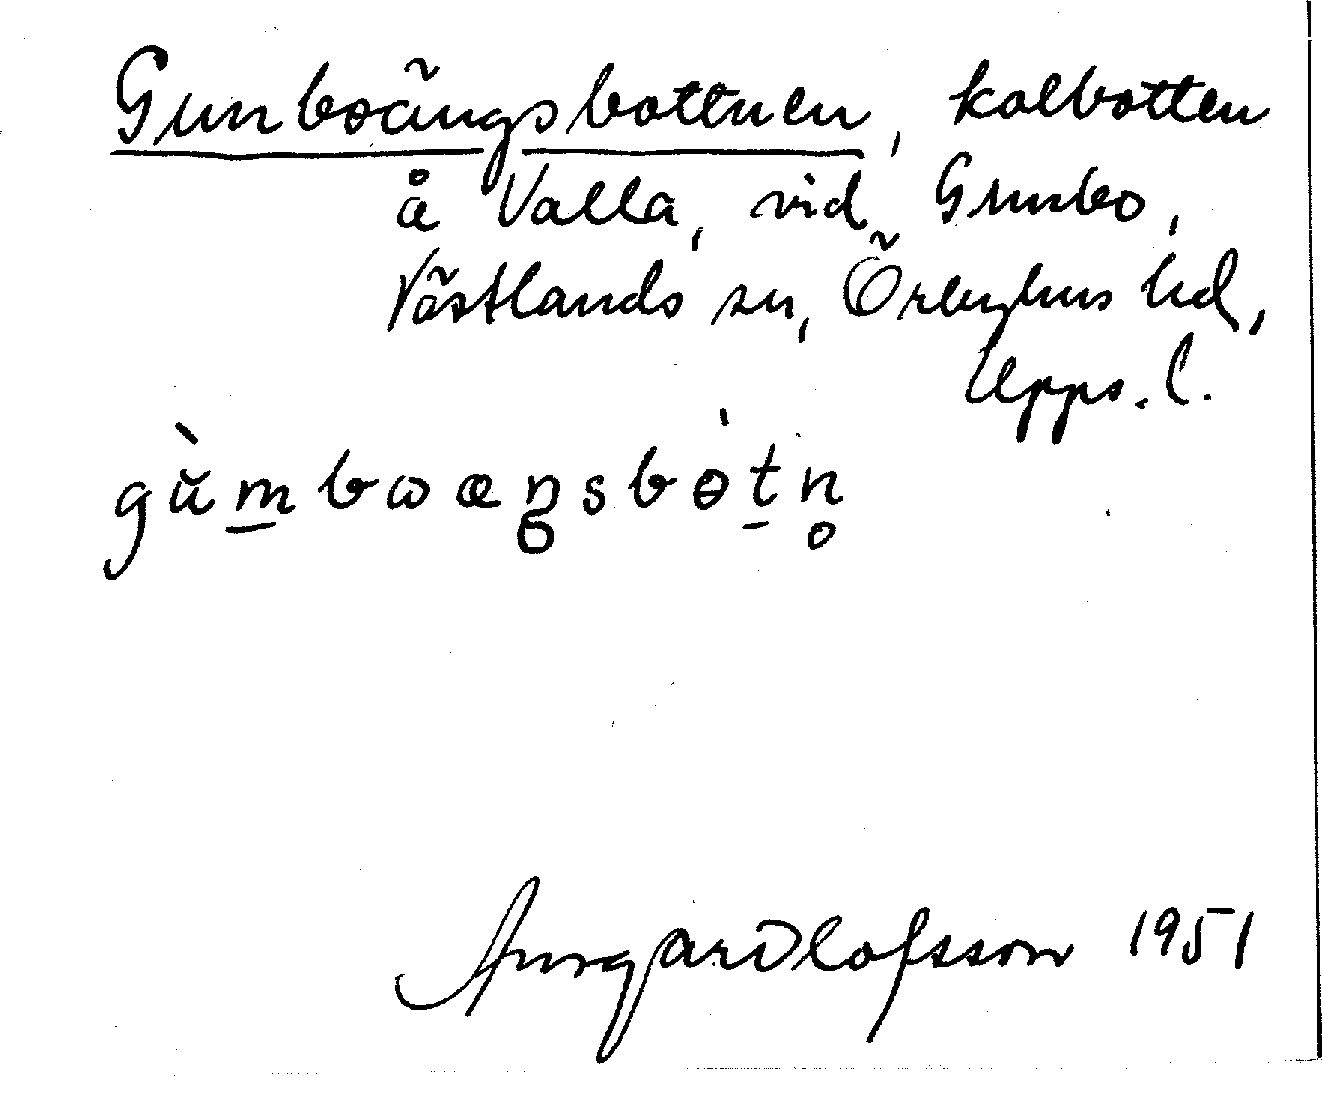 Gunboängsbottnen, kolbotten
å Valla, vid Gunbo,
Västlands sn, Örbyhus hd,
Upps. l.
gùm̲bωæŋsbòt̲n̥
Olofsson 1951